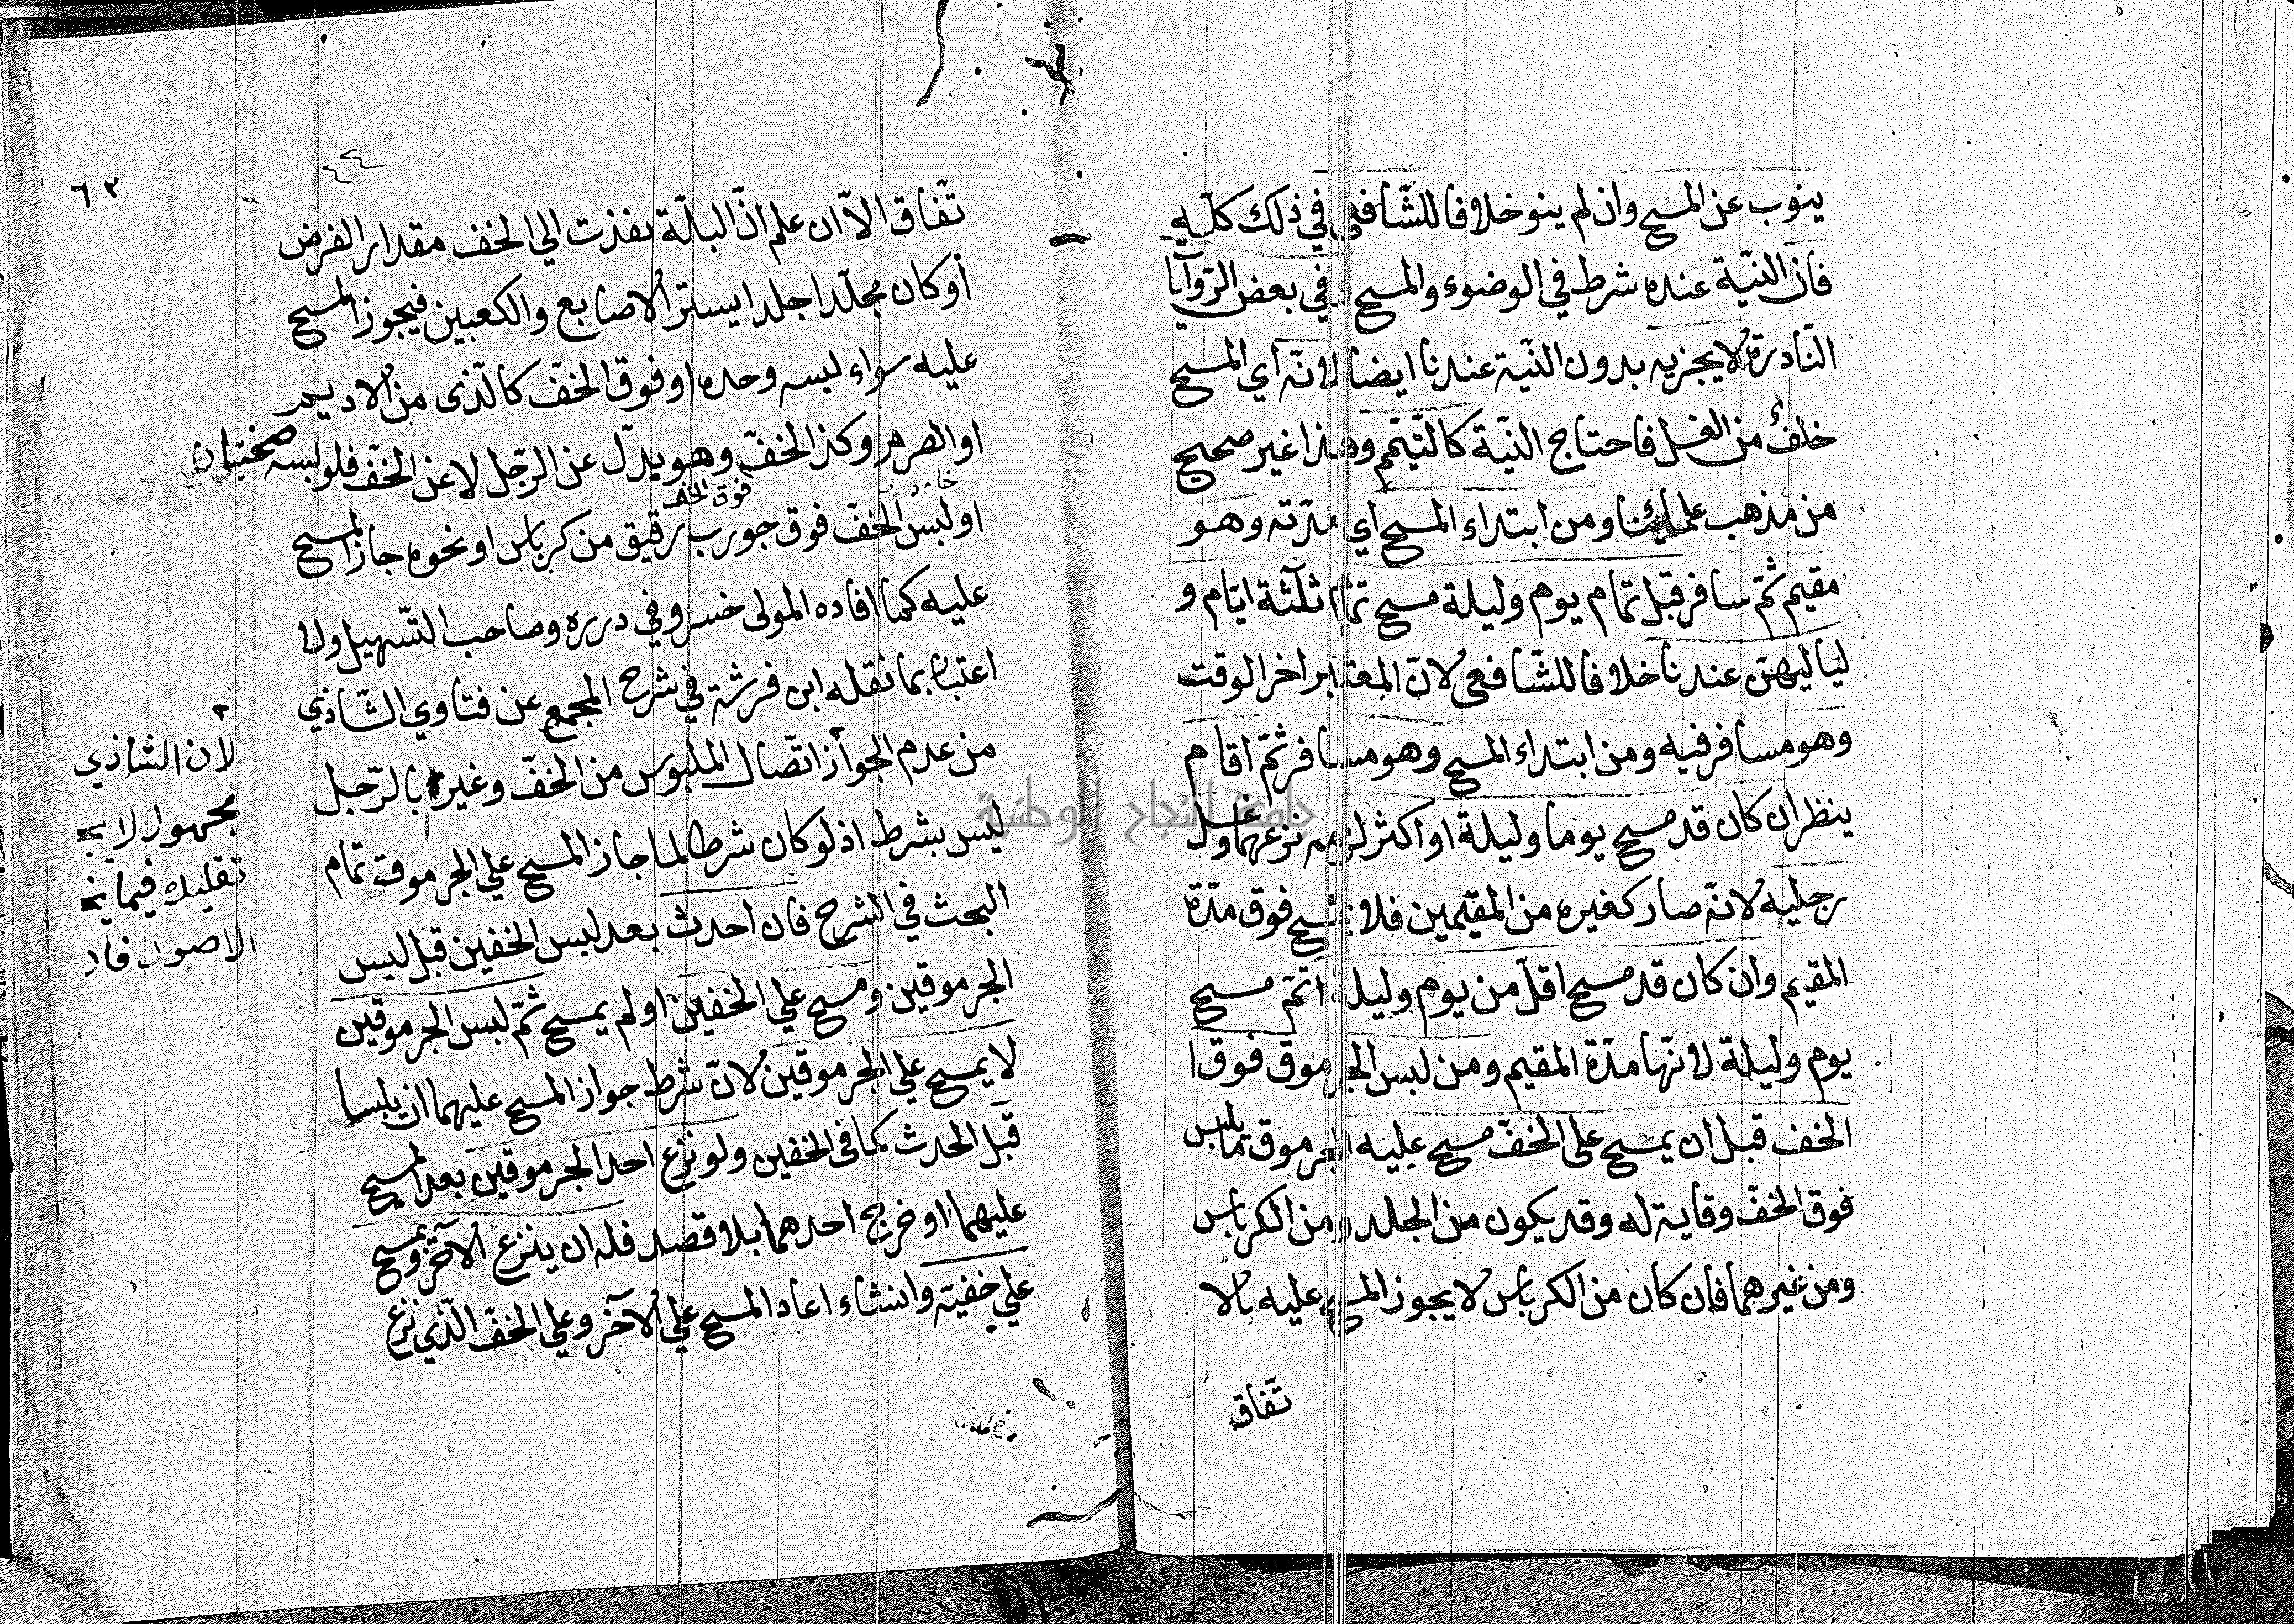 ينوب عن المسح وان لم ينو خلافا للشّافعى في ذلك كلّه
فان النيّة عنده شرط في الوضوء والمسح وفي بعض الرّوايا
النّادرة لا يجزيه بدون النّية عندنا ايضا لانّه اي المسح
خلفٌ من الغسل فاحتاج النيّة كالتّيمّم وهذا غير صحيح
من مذهب علمائنا ومن ابتداء المسح اي مدّته وهو
مقيم ثمّ سافر قبل تمام يوم وليلة مسح تمام ثلثة ايّام و
لياليهنّ عندنا خلافا للشّافعى لانّ المعتبر اخر الوقت
وهو مسافر فيه ومن ابتداء المسح وهو مسافر ثمّ اقام
ينظر ان كان قد مسح يوما وليلة او اكثر لزمه نزعهما وغسل
رجليه لانّه صار كغيره من المقيمين فلا يمسح فوق مدّة
المقيم وان كان قد مسح اقلّ من يوم وليلة اتمّ مسح
يوم وليلة لانّها مدّة المقيم ومن لبس الجرموق فوق ا
الخف قبل ان يمسح على الخفّ مسح عليه الجرموق ما يلبس
فوق الخفّ وقاية له وقد يكون من الجلد ومن الكرباس
ومن غيرهما فان كان من الكرباس لا يجوز المسح عليه بالا
تّفاق
٦٣
تّفاق الاّ ان علم انّ البالّة نفذت الي الخف مقدار الفرض
أو كان مجلّدا جلدا يستر الاصابع والكعبين فيجوز المسح
عليه سواء لبسه وحده او فوق الخفّ كالّذى من الاديم
او الصرم وكذا الخفّ وهو بدل عن الرّجل لا عن الخفّ فلو لبسه
صختيان
فوق الخف
او لبس الخفّ فوق جورب رقيق من كرباس او نحوه جاز المسح
عليه كما افاده المولى خسرو في درره وصاحب التّسهيل ولا
اعتبار بما نقله ابن فرشته في شرح المجمع عن فتاوي الشّاذي
من عدم الجواز اتّصال الملبوس من الخفّ وغيره بالرّجل
ليس بشرط اذ لو كان شرطا لما جاز المسح علي الجرموق تمام
البحث في الشرح فان احدث بعد لبس الخفين قبل لبس
الجرموقين ومسح علي الخفين او لم يمسح ثمّ لبس الجرموقين
لا يمسح علي الجرموقين لانّ شرط جواز المسح عليهما ان يلبسا
قبل الحدث كما فى الخفين ولو نزع احد الجرموقين بعد المسح
عليهما او خرج احدهما بلا قصد فله ان ينزع الآخر ويمسح
علي خفيّه وان شاء اعاد المسح علي الآخر وعلي الخفّ الّذي نزع
لان الشاذي
مجهول لا يج
تقليده فيما يخ
الاصول فاد
جامعة النجاح الوطنية